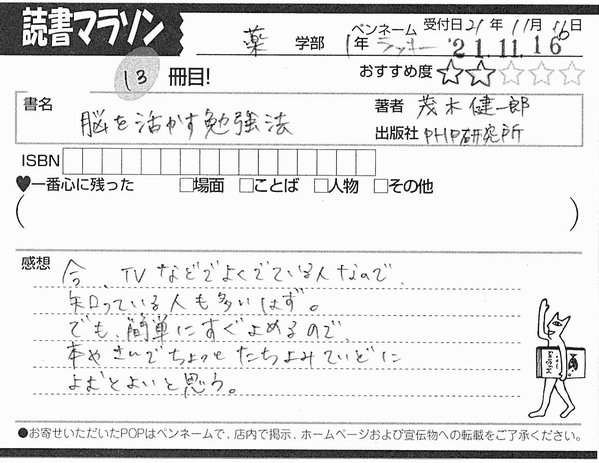 読書マラソン
ペンネーム 受付日 21年 11月 16日
薬 学部 1年 ラッキー '21.11.16
13 冊目!
おすすめ度 ☆☆☆☆☆
書名 脳を活かす勉強法
著者 茂木健一郎
出版社 PHP研究所
ISBN
♥一番心に残った □場面 □ことば □人物 □その他
( )
感想
今、TVなどでよくでている人なので、
知っている人も多いはず。
でも、簡単にすぐよめるので、
本やさんでちょっとたちよみていどに
よむとよいと思う。
●お寄せいただいたPOPはペンネームで、店内で掲示、ホームページおよび宣伝物への転載をご了承ください。